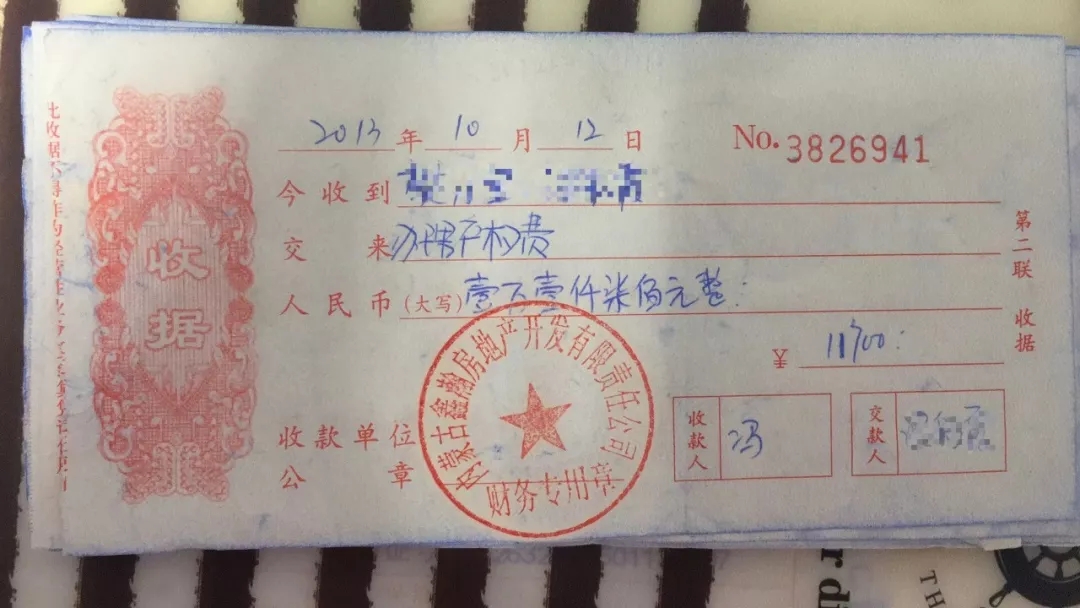 2013年10月12日
No. 3826941
今收到
交来 办理产权费
人民币(大写)壹万壹仟柒佰元整
¥ 11700
收款单位公章
内蒙古鑫瀚房地产开发有限责任公司
财务专用章
收款人 冯
交款人
收据
第二联 收据